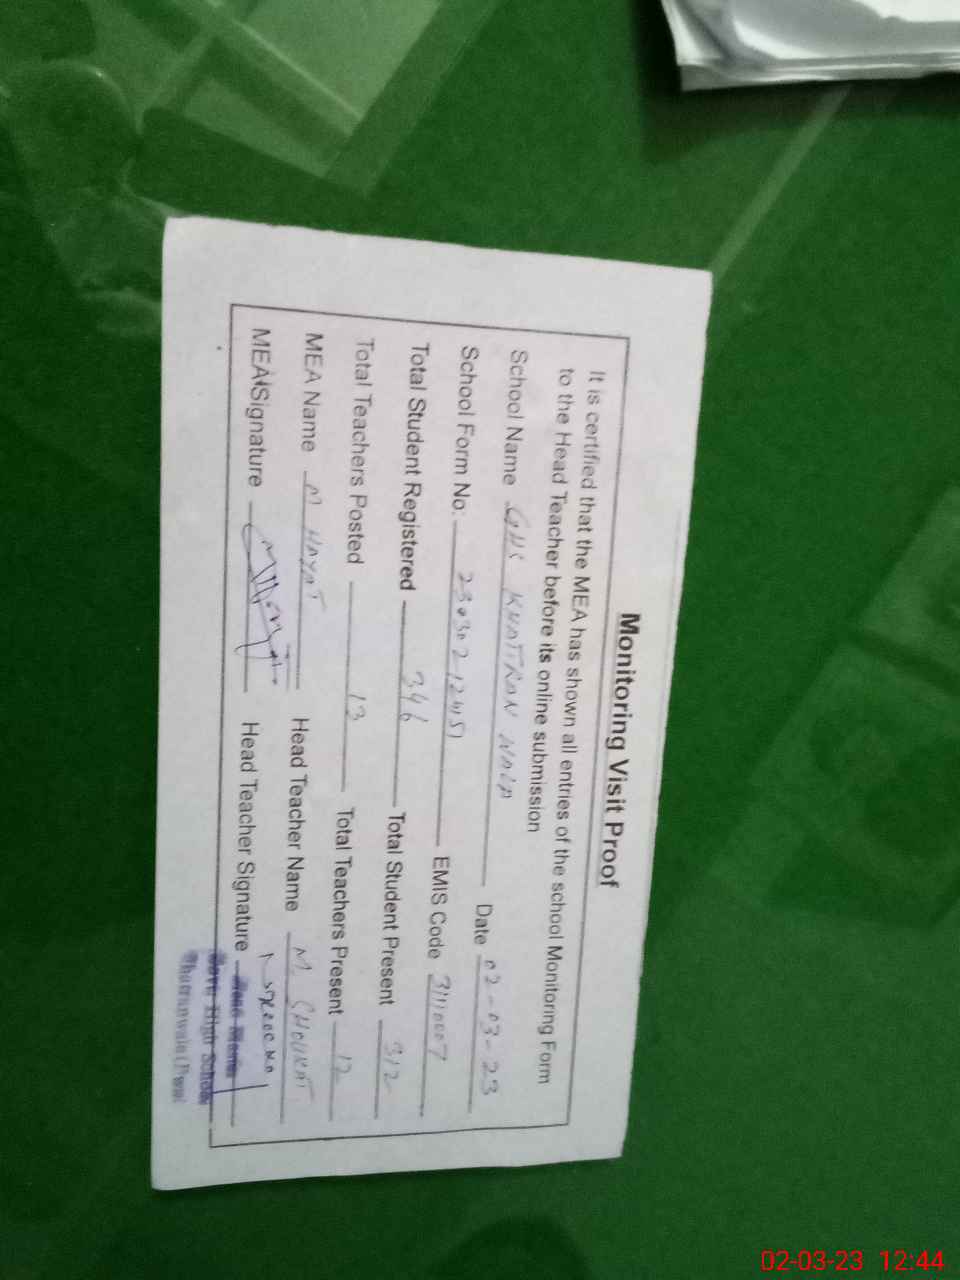 Monitoring Visit Proof
It is certified that the MEA has shown all entries of the school Monitoring Form
to the Head Teacher before its online submission
School Name GHS KHATTRAN WALA Date 02-03-23
School Form No: 230302 12451 EMIS Code 31110007
Total Student Registered 346 Total Student Present 312
Total Teachers Posted 13 Total Teachers Present 12
MEA Name M HAYAT Head Teacher Name M SHOUKAT
MEA Signature Head Teacher Signature
Govt High School
02-03-23 12:44